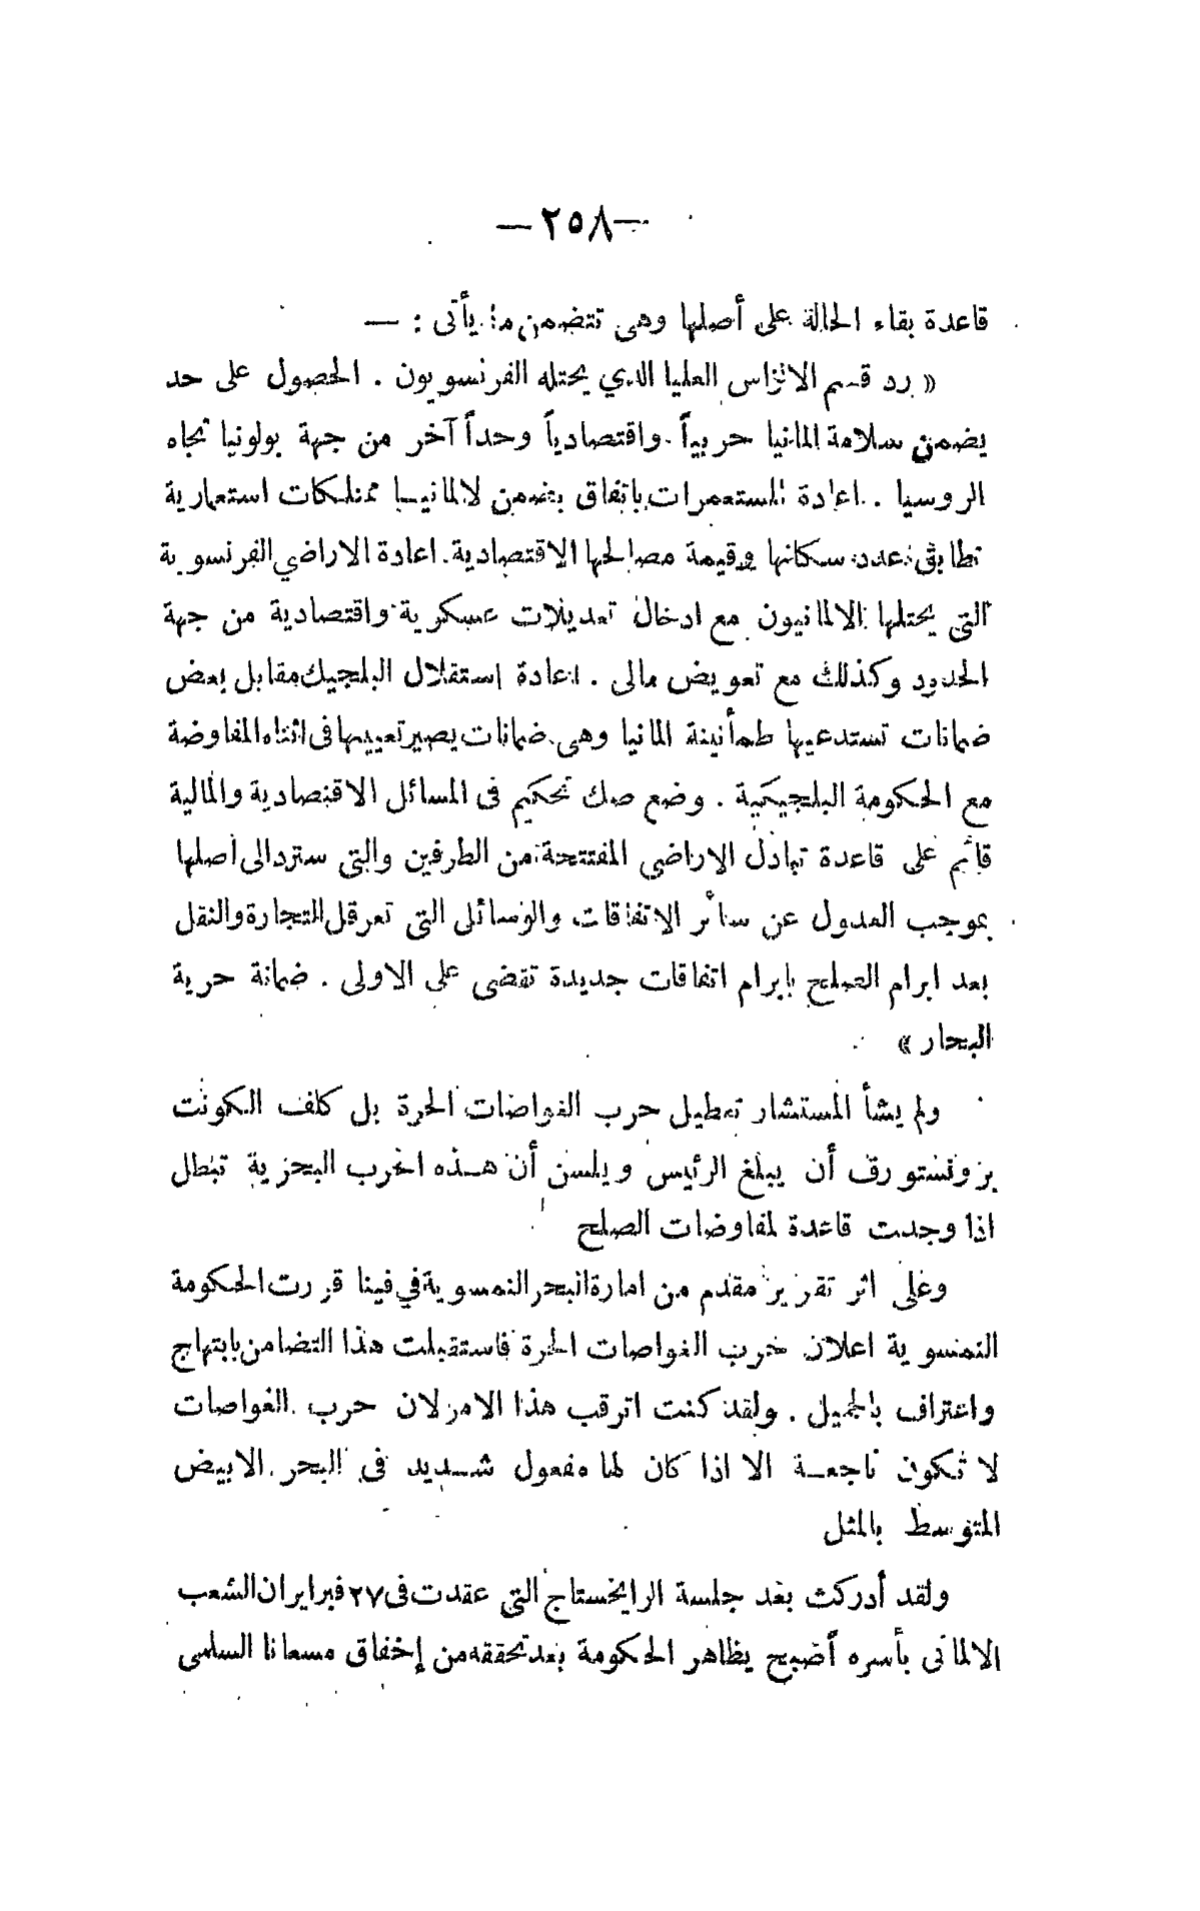 — ٢٥٨ —
قاعدة بقاء الحالة على أصلها وهى تتضمن ما يأتى : —
« رد قسم الالزاس العليا الذي يحتله الفرنسويون . الحصول على حد
يضمن سلامة المانيا حربياً واقتصادياً وحداً آخر من جهة بولونيا تجاه
الروسيا . اعادة المستعمرات باتفاق يضمن لالمانيا ممتلكات استعمارية
تطابق عدد سكانها وقيمة مصالحها الاقتصادية . اعادة الاراضي الفرنسوية
التى يحتلها الالمانيون مع ادخال تعديلات عسكرية واقتصادية من جهة
الحدود وكذلك مع تعويض مالى . اعادة استقلال البلجيك مقابل بعض
ضمانات تستدعيها طمأنينة المانيا وهى ضمانات يصير تعيينها فى اثناء المفاوضة
مع الحكومة البلجيكية . وضع صك تحكيم فى المسائل الاقتصادية والمالية
قائم على قاعدة تبادل الاراضى المفتتحة من الطرفين والتى ستردالى أصلها
بموجب العدول عن سائر الاتفاقات والوسائل التى تعرقل التجارة والنقل
بعد ابرام الصلح بابرام اتفاقات جديدة تقضى على الاولى . ضمانة حرية
البحار »
ولم يشأ المستشار تعطيل حرب الغواضات الحرة بل كلف الكونت
برونستورف أن يبلغ الرئيس ويلسن أن هذه الحرب البحرية تبطل
اذا وجدت قاعدة لمفاوضات الصلح
وعلى اثر تقرير مقدم من امارة البحر النمسوية في فينا قررت الحكومة
النمسوية اعلان حرب الغواصات الحرة فاستقبلت هذا التضامن بابتهاج
واعتراف بالجميل . ولقد كنت اترقب هذا الامر لان حرب الغواصات
لا تكون ناجعة الا اذا كان لها مفعول شديد فى البحر الابيض
المتوسط بالمثل
ولقد أدركت بعد جلسة الرايخستاج التى عقدت فى ٢٧ فبراير ان الشعب
الالمانى بأسره أضبح يظاهر الحكومة بعد تحققه من إخفاق مسعانا السلمى